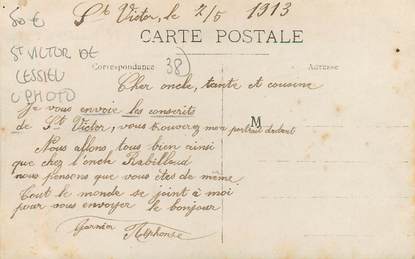 80€ St Victor, le 2/5 1913
CARTE POSTALE
ST VICTOR DE
CESSIEU
C PHOTO
38
Correspondance Adresse
Cher oncle, tante et cousine
Je vous envoie les conscrits
de St Victor, vous trouverez mon portrait dedant
M
Nous allons, tous bien ainsi
que chez l'oncle Rabilloud
nous pensons que vous êtes de même
Tout le monde se joint à moi
pour vous envoyer le bonjour
Garnier Alphonse